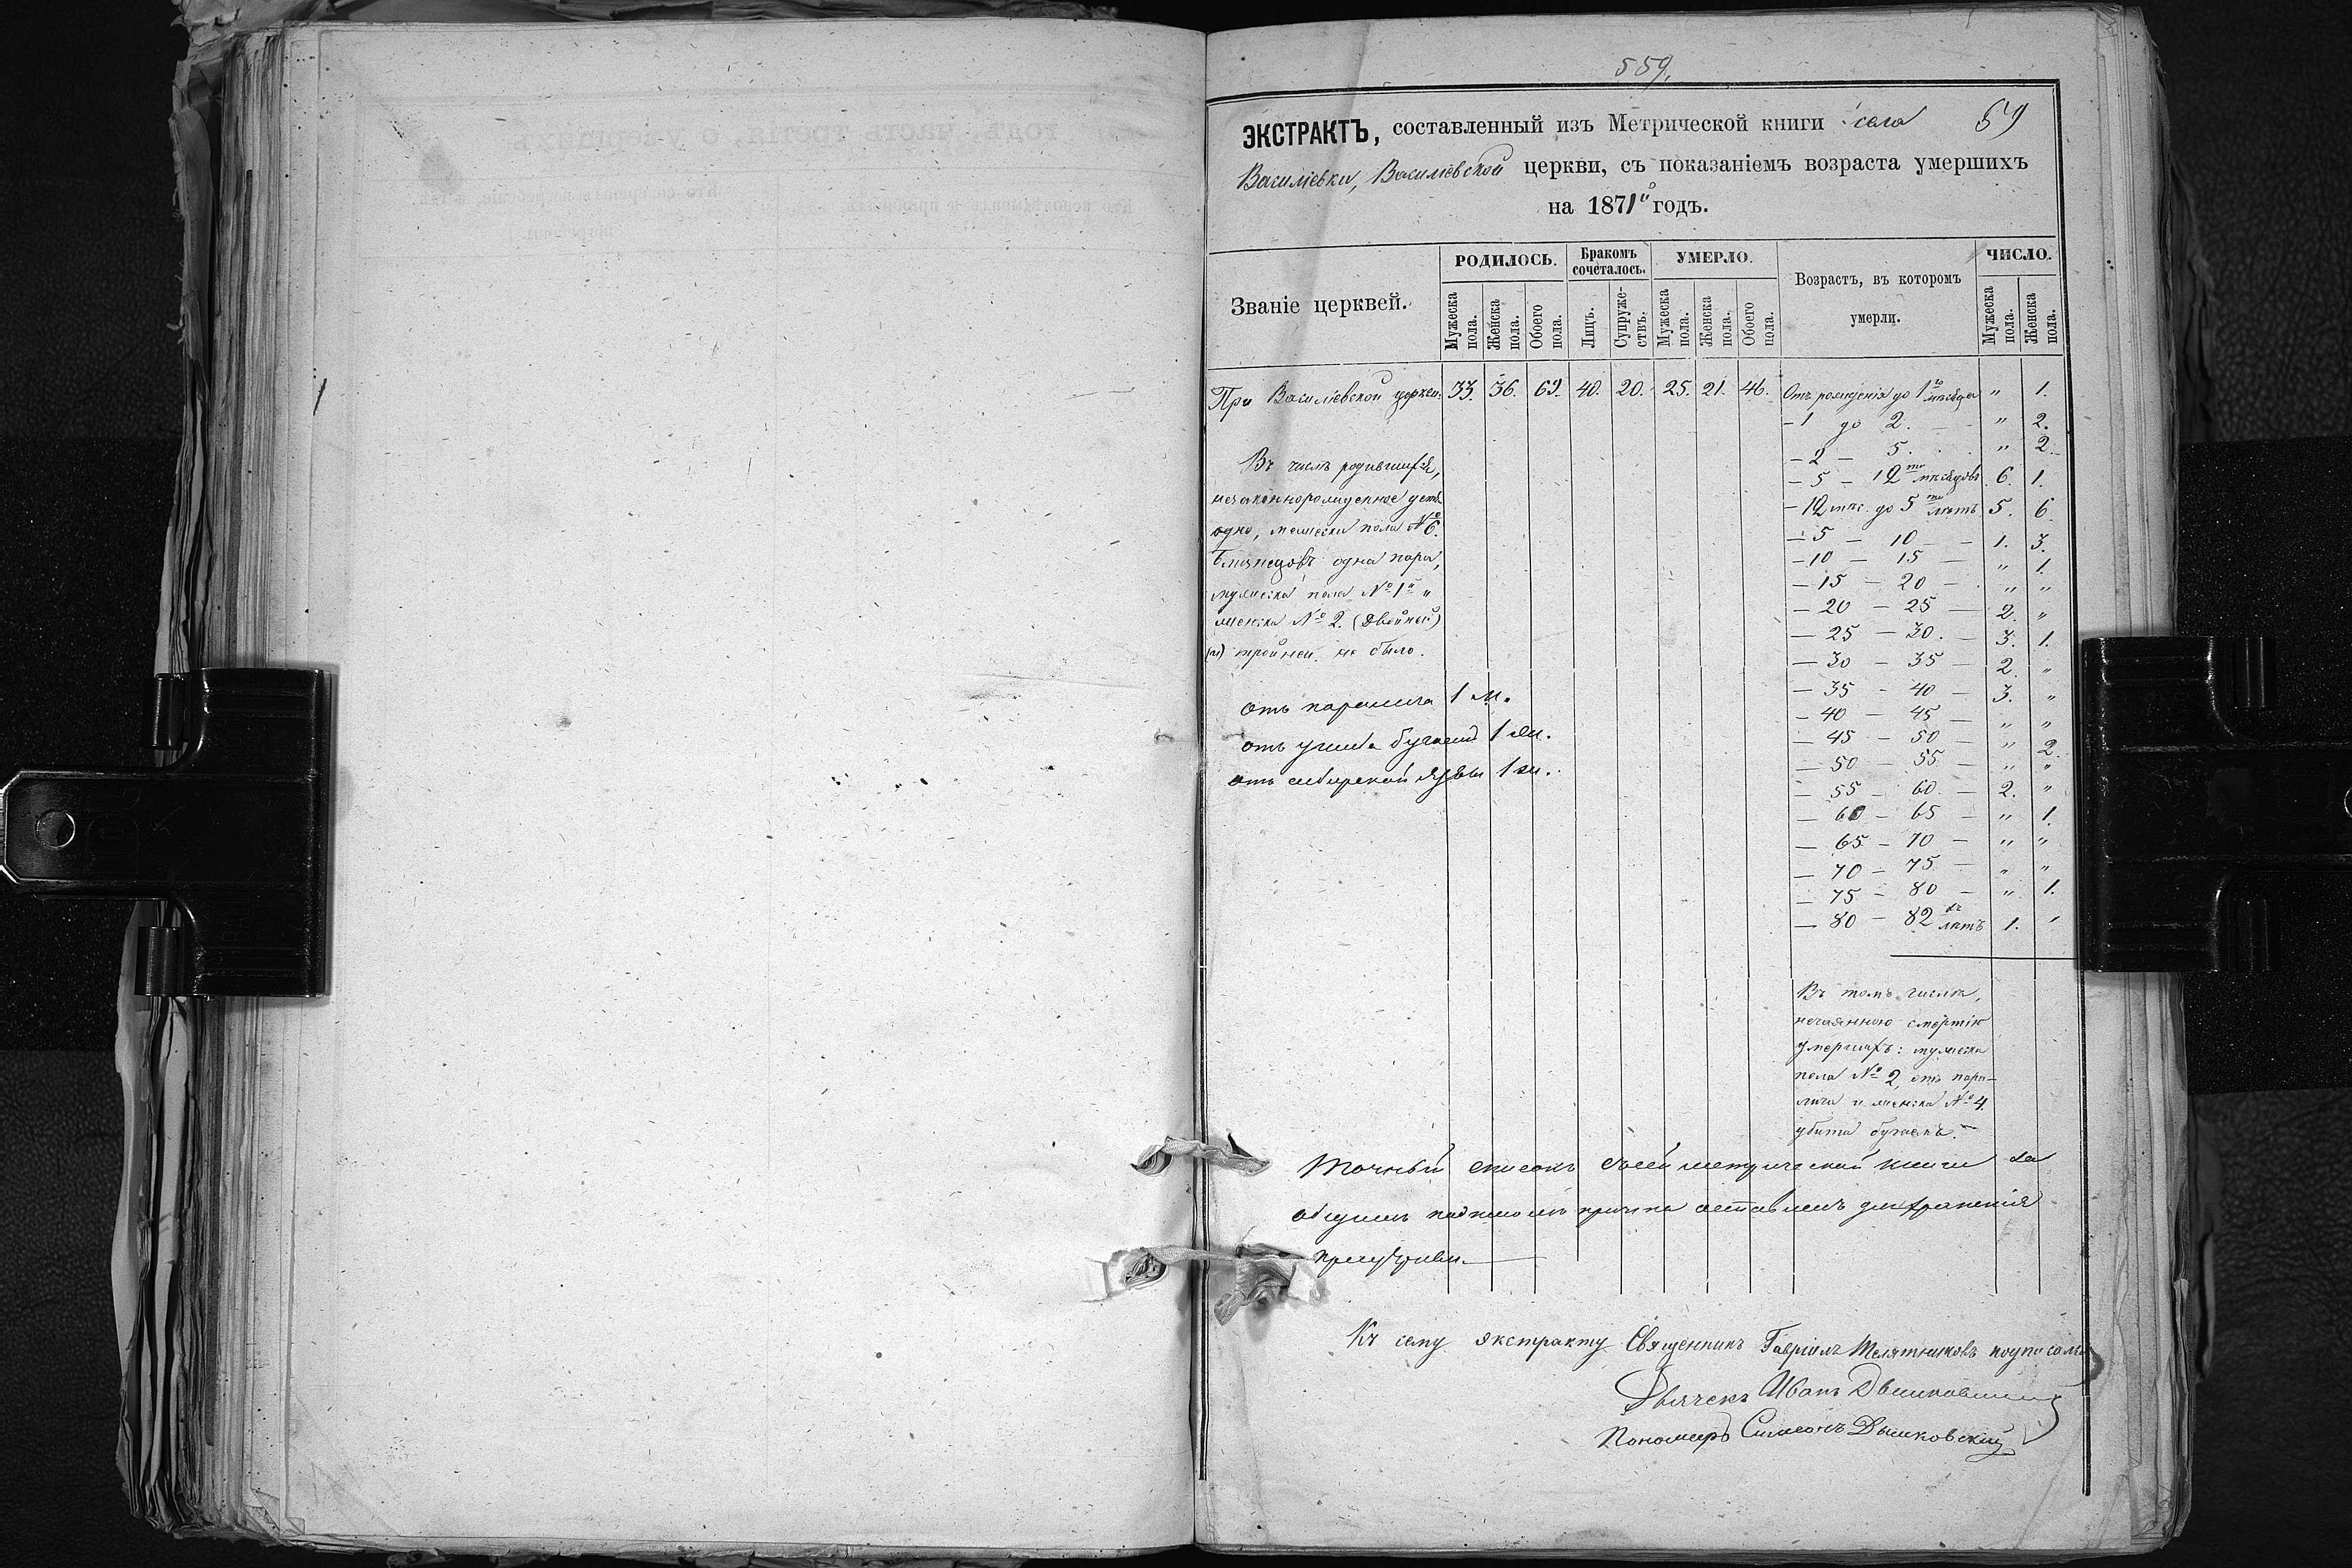 559.
69
ЭКСТРАКТЪ, составленный изъ Метрической книги села
Василіевки, Василіевской церкви, съ показаніемъ возраста умершихъ
на 1871й годъ.
Званіе церквей. РОДИЛОСЬ. Бракомъ сочеталось. УМЕРЛО. Возрастъ, въ которомъ умерли. ЧИСЛО.
Мужеска пола. Женска пола. Обоего пола. Лицъ. Супружествъ. Мужеска пола. Женска пола. Обоего пола. Мужеска пола. Женска пола.
При Василіевской церкви. 33. 36. 69. 40. 20. 25. 21. 46. Отъ рожденія до 1го мѣсяца " 1.
- 1 до 2. - " 2.
- 2 - 5. " 2.
- 5 - 12ти мѣсяцовъ 6. 1.
- 12 мѣс. до 5ти лѣтъ 5. 6.
- 5 - 10 - 1. 3.
- 10 - 15 - " 1.
- 15 - 20 - " "
- 20 - 25 - 2. "
- 25 - 30. - 3. 1.
- 30 - 35 - 2. "
- 35 - 40 - 3. "
- 40 - 45 - " "
- 45 - 50 - " 2.
- 50 - 55 - " "
- 55 - 60 - 2. "
- 60 - 65 - " 1.
- 65 - 70 - " "
- 70 - 75 - " "
- 75 - 80 - " 1.
- 80 - 82хъ лѣтъ 1. "
Въ числѣ родившихся,
незаконнорожденное дитя
одно, женска пола № 6.
Близнецовъ одна пара,
мужеска пола № 1й и
женска № 2. (Двойней)
тройней не было.
отъ паралича 1 м.
отъ ушиба бугаемъ 1 ж.
отъ сибирской язвы 1 м.
Въ томъ числѣ,
нечаянною смертію
умершихъ: мужеска
пола № 2, отъ пара-
лича и женска № 4.
убита бугаемъ.
Точный списокъ съ сей метрической книги за
общимъ подписомъ причта оставленъ для храненія
при церкви.
Къ сему экстракту Священникъ Гавріилъ Телятниковъ подписалъ
Дьячекъ Иванъ Дышковскій
Пономарь Симеонъ Дышковскій